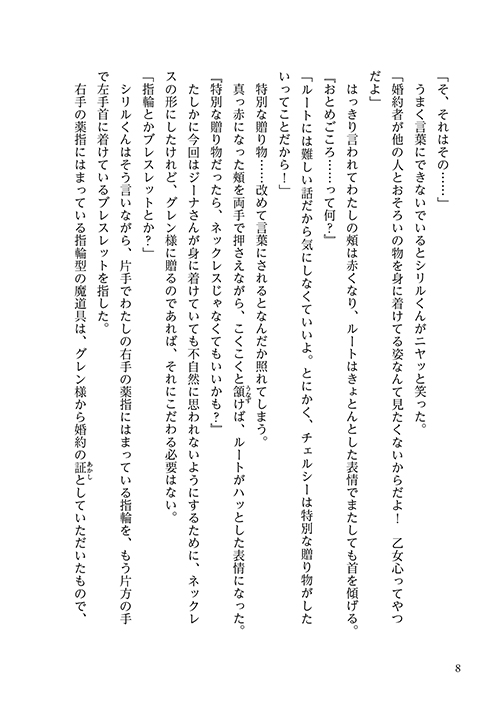 「そ、それはその……」
　うまく言葉にできないでいるとシリルくんがニヤッと笑った。
「婚約者が他の人とおそろいの物を身に着けてる姿なんて見たくないからだよ！　乙女心ってやつ
だよ」
　はっきり言われてわたしの頬は赤くなり、ルートはきょとんとした表情でまたしても首を傾げる。
『おとめごころ……って何？』
「ルートには難しい話だから気にしなくていいよ。とにかく、チェルシーは特別な贈り物がした
いってことだから！」
　特別な贈り物……改めて言葉にされるとなんだか照れてしまう。
　真っ赤になった頬を両手で押さえながら、こくこくと頷けば、ルートがハッとした表情になった。
『特別な贈り物だったら、ネックレスじゃなくてもいいかも？』
　たしかに今回はジーナさんが身に着けていても不自然に思われないようにするために、ネックレ
スの形にしたけれど、グレン様に贈るのであれば、それにこだわる必要はない。
「指輪とかブレスレットとか？」
　シリルくんはそう言いながら、片手でわたしの右手の薬指にはまっている指輪を、もう片方の手
で左手首に着けているブレスレットを指した。
　右手の薬指にはまっている指輪型の魔道具は、グレン様から婚約の証としていただいたもので、
うなず
あかし
8